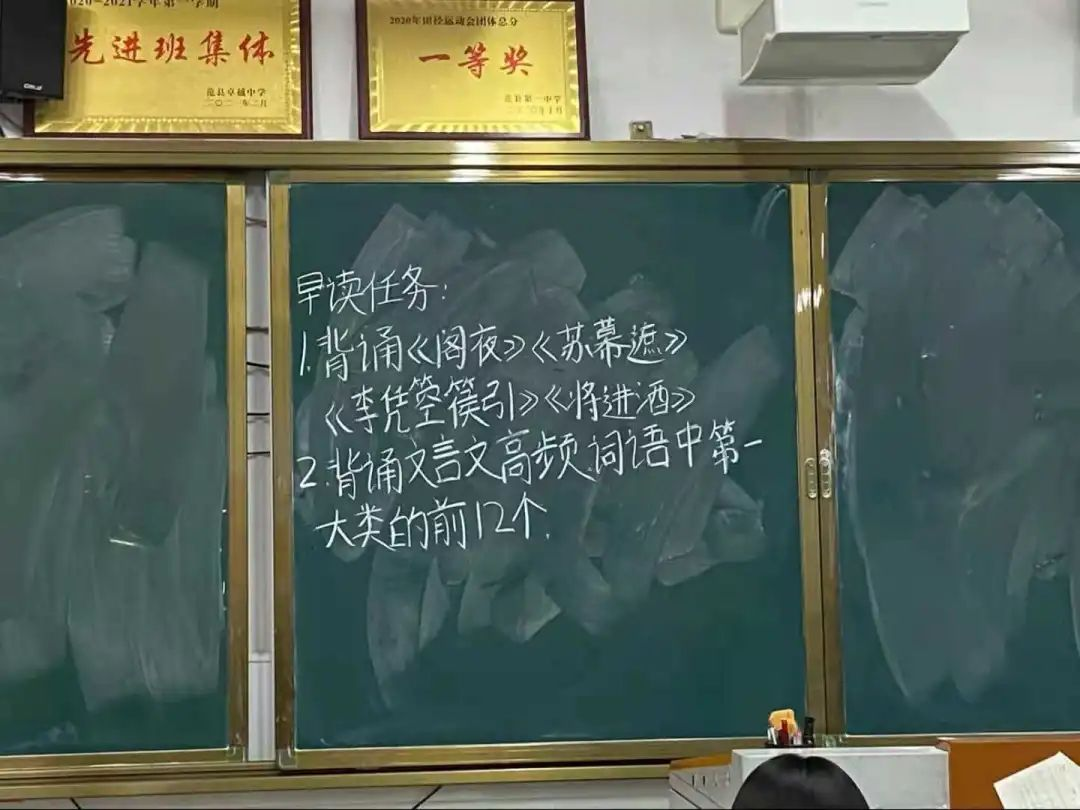 2020-2021学年第一学期
先进班集体
范县卓越中学
二〇二一年二月
2020年田径运动会团体总分
一等奖
范县第一中学
二〇二〇年十月
早读任务:
1.背诵《阁夜》《苏幕遮》
《李凭箜篌引》《将进酒》
2.背诵文言文高频词语中第一
大类的前12个.